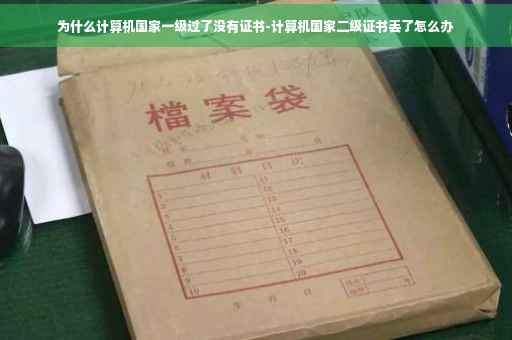 为什么计算机国家一级过了没有证书-计算机国家二级证书丢了怎么办
檔案袋
材料目次
1 11
2 12
3 13
4 14
5 15
6 16
7 17
8 18
9 19
10 20
年 月 日